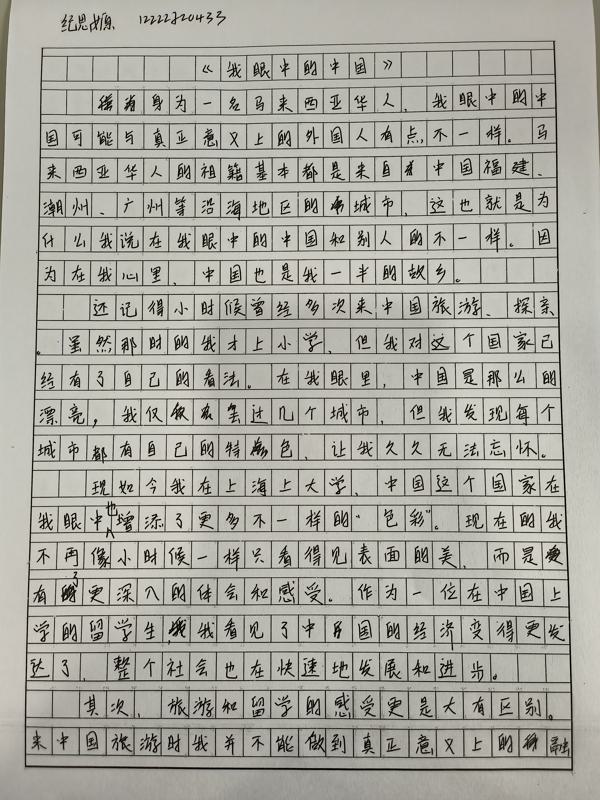 纪思嫄 12222720433
《我眼中的中国》
身为一名马来西亚华人，我眼中的中
国可能与真正意义上的外国人有点不一样。马
来西亚华人的祖籍基本都是来自中国福建、
潮州、广州等沿海地区的城市，这也就是为
什么我说在我眼中的中国和别人的不一样。因
为在我心里，中国也是我一半的故乡。
还记得小时候曾经多次来中国旅游、探亲
。虽然那时的我才上小学，但我对这个国家已
经有了自己的看法。在我眼里，中国是那么的
漂亮，我仅仅去过几个城市，但我发现每个
城市都有自己的特色，让我久久无法忘怀。
现如今我在上海上大学，中国这个国家在
我眼中也增添了更多不一样的“色彩”。现在的我
不再像小时候一样只看得见表面的美，而是
有了更深入的体会和感受。作为一位在中国上
学的留学生，我看见了中国的经济变得更发
达了，整个社会也在快速地发展和进步。
其次，旅游和留学的感受更是大有区别。
来中国旅游时我并不能做到真正意义上的融